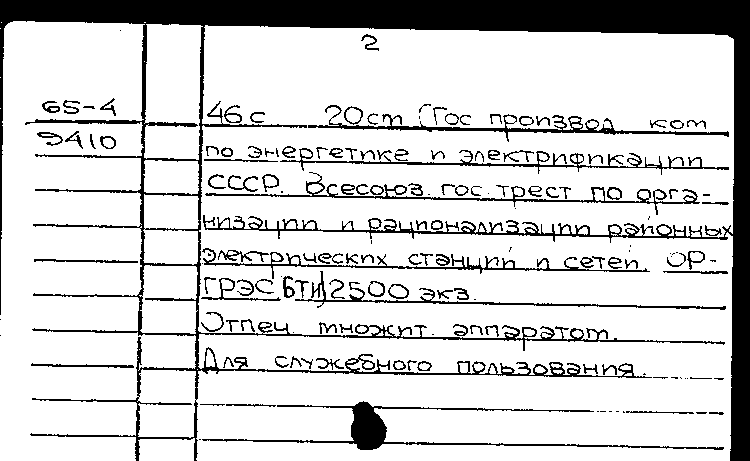 2
65-4
9410
46 с 20 cm (Гос производ ком
по энергетике и электрификации
СССР. Всесоюз. гос. трест по орга-
низации и рационализации районных
электрических станций и сетей. ОР-
ГРЭС БТИ) 2500 экз.
Отпеч множит. аппаратом.
Для служебного пользования.